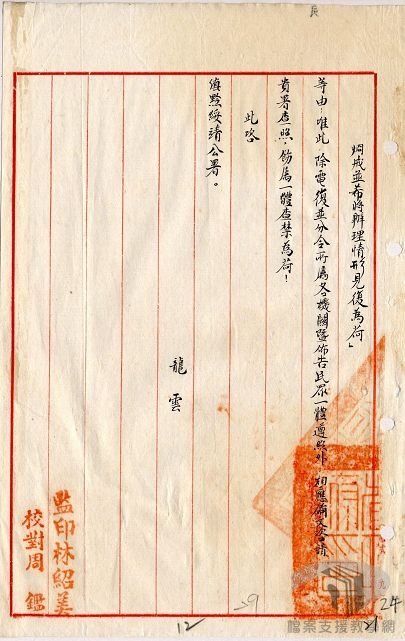 炯戒並希將辦理情形見復為荷」
等由；准此，除電復並分令所屬各機關暨佈告民眾一體遵照外，相應備文咨請
貴署查照，飭屬一體查禁為荷！
此咨
滇黔綏靖公署。
龍雲
監印林紹美
校對周鑑
12
29
24
21
檔案支援教學網